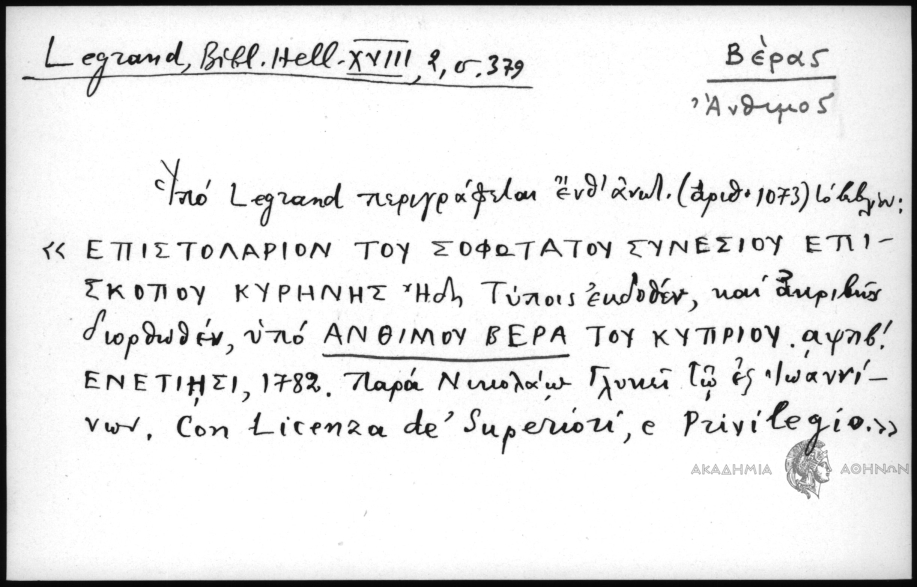 Legrand, Bibl. Hell. XVIII, 2, σ. 379
Βέρας
Ἄνθιμος
Ὑπό Legrand περιγράφεται ἔνθ' ἀνωτ. (ἀριθ. 1073) τό βιβλίον:
« ΕΠΙΣΤΟΛΑΡΙΟΝ ΤΟΥ ΣΟΦΩΤΑΤΟΥ ΣΥΝΕΣΙΟΥ ΕΠΙ-
ΣΚΟΠΟΥ ΚΥΡΗΝΗΣ Ἤδη Τύποις ἐκδοθέν, καί ἀκριβῶς
διορθωθέν, ὑπό ΑΝΘΙΜΟΥ ΒΕΡΑ ΤΟΥ ΚΥΠΡΙΟΥ. αψπβ!
ΕΝΕΤΙΗΣΙ, 1782. Παρά Νικολάῳ Γλυκεῖ τῷ ἐξ Ἰωαννί-
νων. Con Licenza de' Superiori, e Privilegio.»
ΑΚΑΔΗΜΙΑ ΑΘΗΝΩΝ